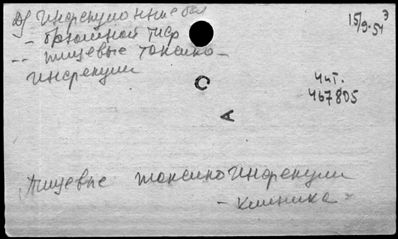 Инфекционные бол
15/9-54 э
- брюшной тиф
-- пищевые токсико-
инфекции
Чит.
467805
С
А
Пищевые токсикоинфекции
- клиника -